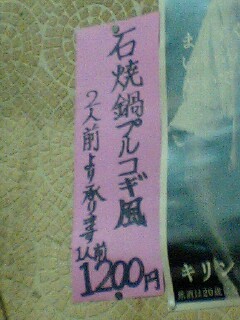 石焼鍋プルコギ風
2人前より承ります
1人前
1200円
キリン